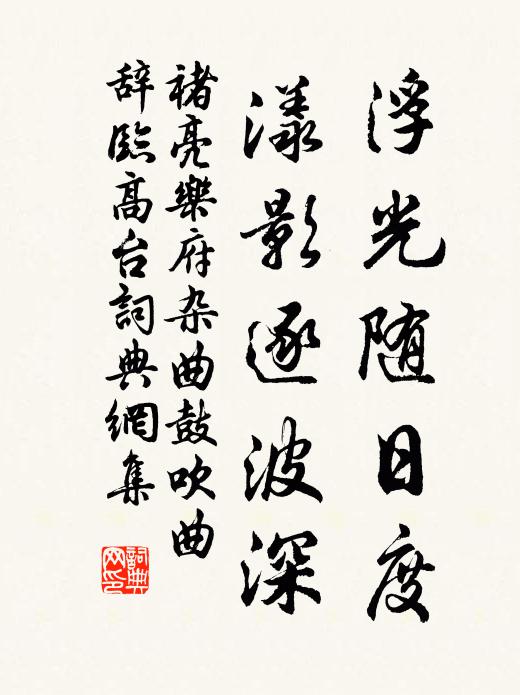 浮光随日度
漾影逐波深
褚亮樂府杂曲鼓吹曲
辞臨高台詞典網集
詞典
网印